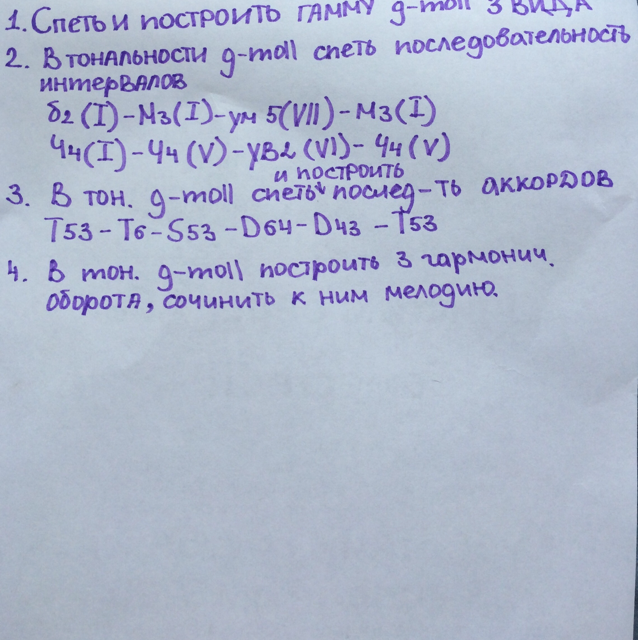 1. Спеть и построить гамму g-moll 3 вида
2. В тональности g-moll спеть последовательность
интервалов
б2 (I) – м3 (I) – ум 5 (VII) – м3 (I)
ч4 (I) – ч4 (V) – ув2 (VI) – ч4 (V)
и построить
3. В тон. g-moll спеть послед-ть аккордов
T53 – T6 – S53 – D64 – D43 – T53
4. В тон. g-moll построить 3 гармонич.
оборота, сочинить к ним мелодию.